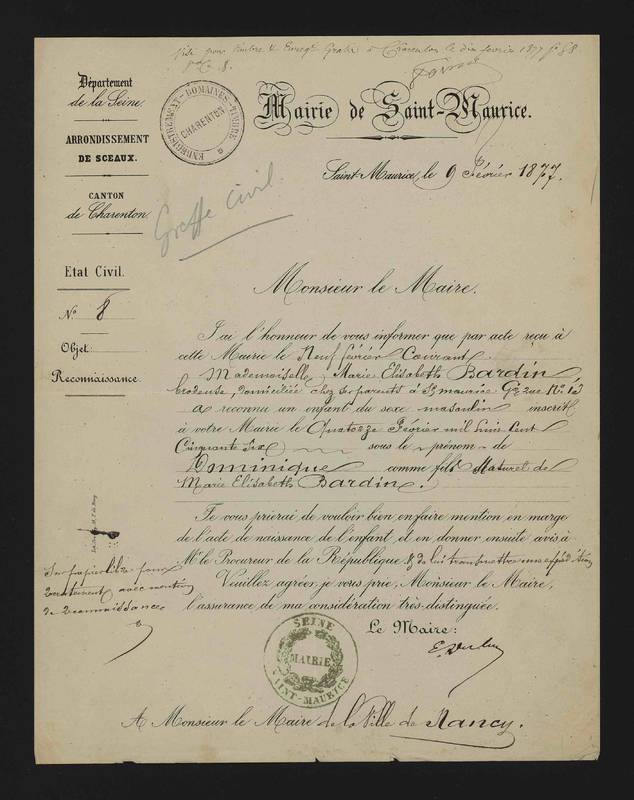 Visé pour timbre & Enregt Gratis à Charenton le dix fevrier 1877 fo 58
Vo Ce 8.
Département
de la Seine.
ARRONDISSEMENT
DE SCEAUX.
CANTON
de Charenton
Etat Civil.
No 8
Objet:
Reconnaissance
ENREGISTREMENT-DOMAINES-TIMBRE
CHARENTON
Mairie de Saint-Maurice.
Saint-Maurice, le 9 Février 1877.
Greffe Civil.
Monsieur le Maire.
J'ai l'honneur de vous informer que par acte reçu à
cette Mairie le Neuf février Courant
Mademoiselle Marie Elisabeth Bardin
brodeuse, domiciliée chez ses parents à St maurice Gde rue No 13
a reconnu un enfant du sexe masculin inscrit
à votre Mairie le Quatorze Février mil huit Cent
Cinquante Six sous le prénom de
Dominique comme fils Naturel de
Marie Elisabeth Bardin.
Je vous prierai de vouloir bien en faire mention en marge
de l'acte de naissance de l'enfant et en donner ensuite avis à
Mr le Procureur de la République & de lui transmettre une expédition
Veuillez agréer, je vous prie, Monsieur le Maire,
l'assurance de ma considération très-distinguée.
Sur papier libre pour
recrutement avec mention
de reconnaissance
Le Maire:
SEINE
MAIRIE
SAINT-MAURICE
A Monsieur le Maire de la Ville de Nancy.